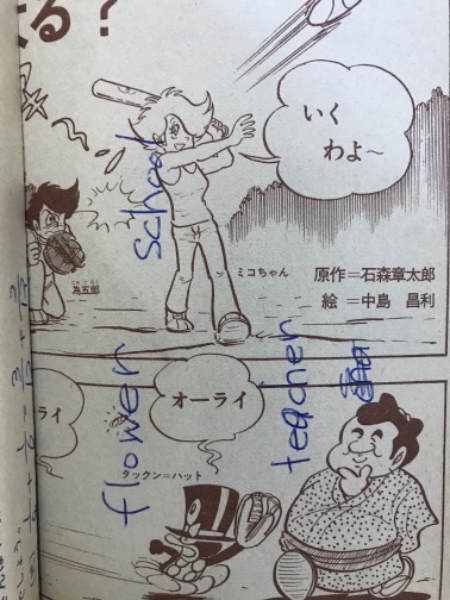 る？
いく
わよ〜
ミコちゃん
為五郎
原作＝石森章太郎
絵＝中島 昌利
school
flower
teacher
オーライ
ライ
タックン＝ハット